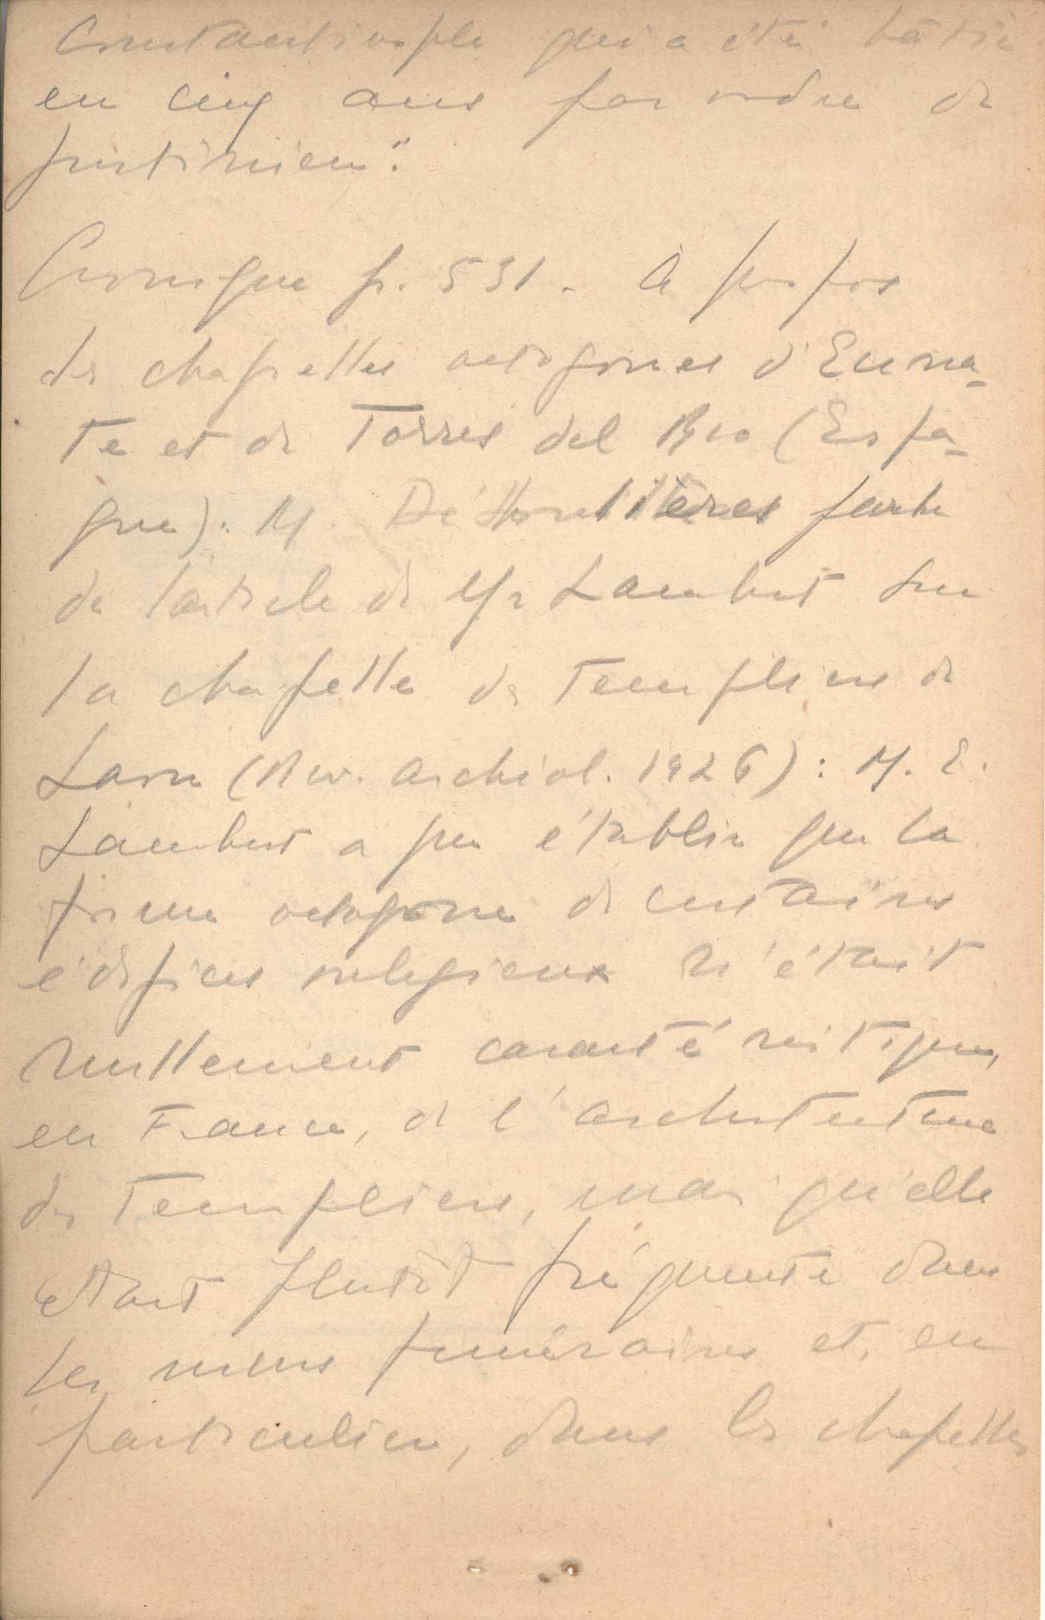 Constantinople qui a été bâtie
en cinq ans par ordre de
Justinien".
Cronique p. 531. A propos
des chapelles octogones d'Euna-
te et de Torres del Rio (Espa-
gne): M. Déshoulières parle
de l'article de Mr Lambert sur
la chapelle des Templiers de
Laon (Rev. archéol. 1926): M. E.
Lambert a pu établir que la
forme octogone de certains
édifices religieux n'était
nullement caractéristique,
en France, de l'architecture
des Templiers, mais qu'elle
était plutôt fréquente dans
les funéraires et, en
particulier, dans les chapelles